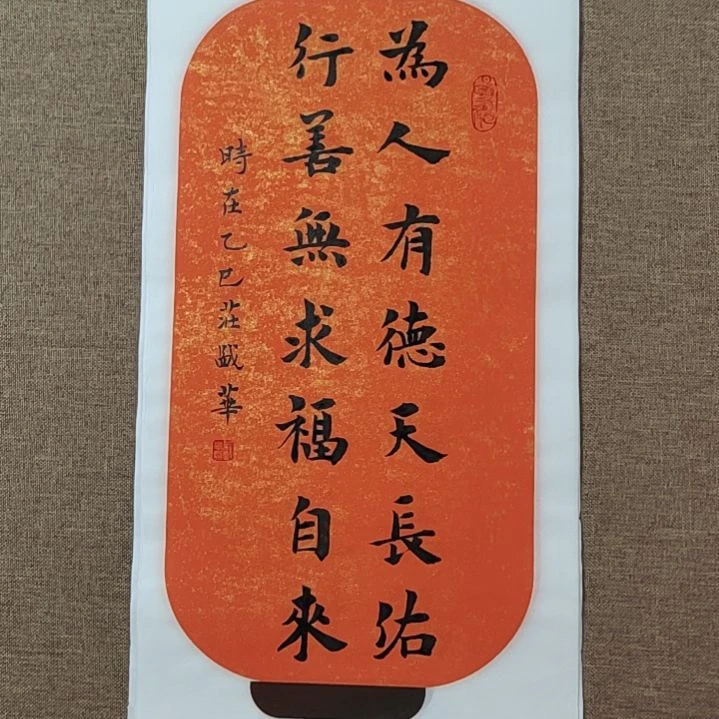 為人有德天長佑
行善無求福自來
時在乙巳莊戥華